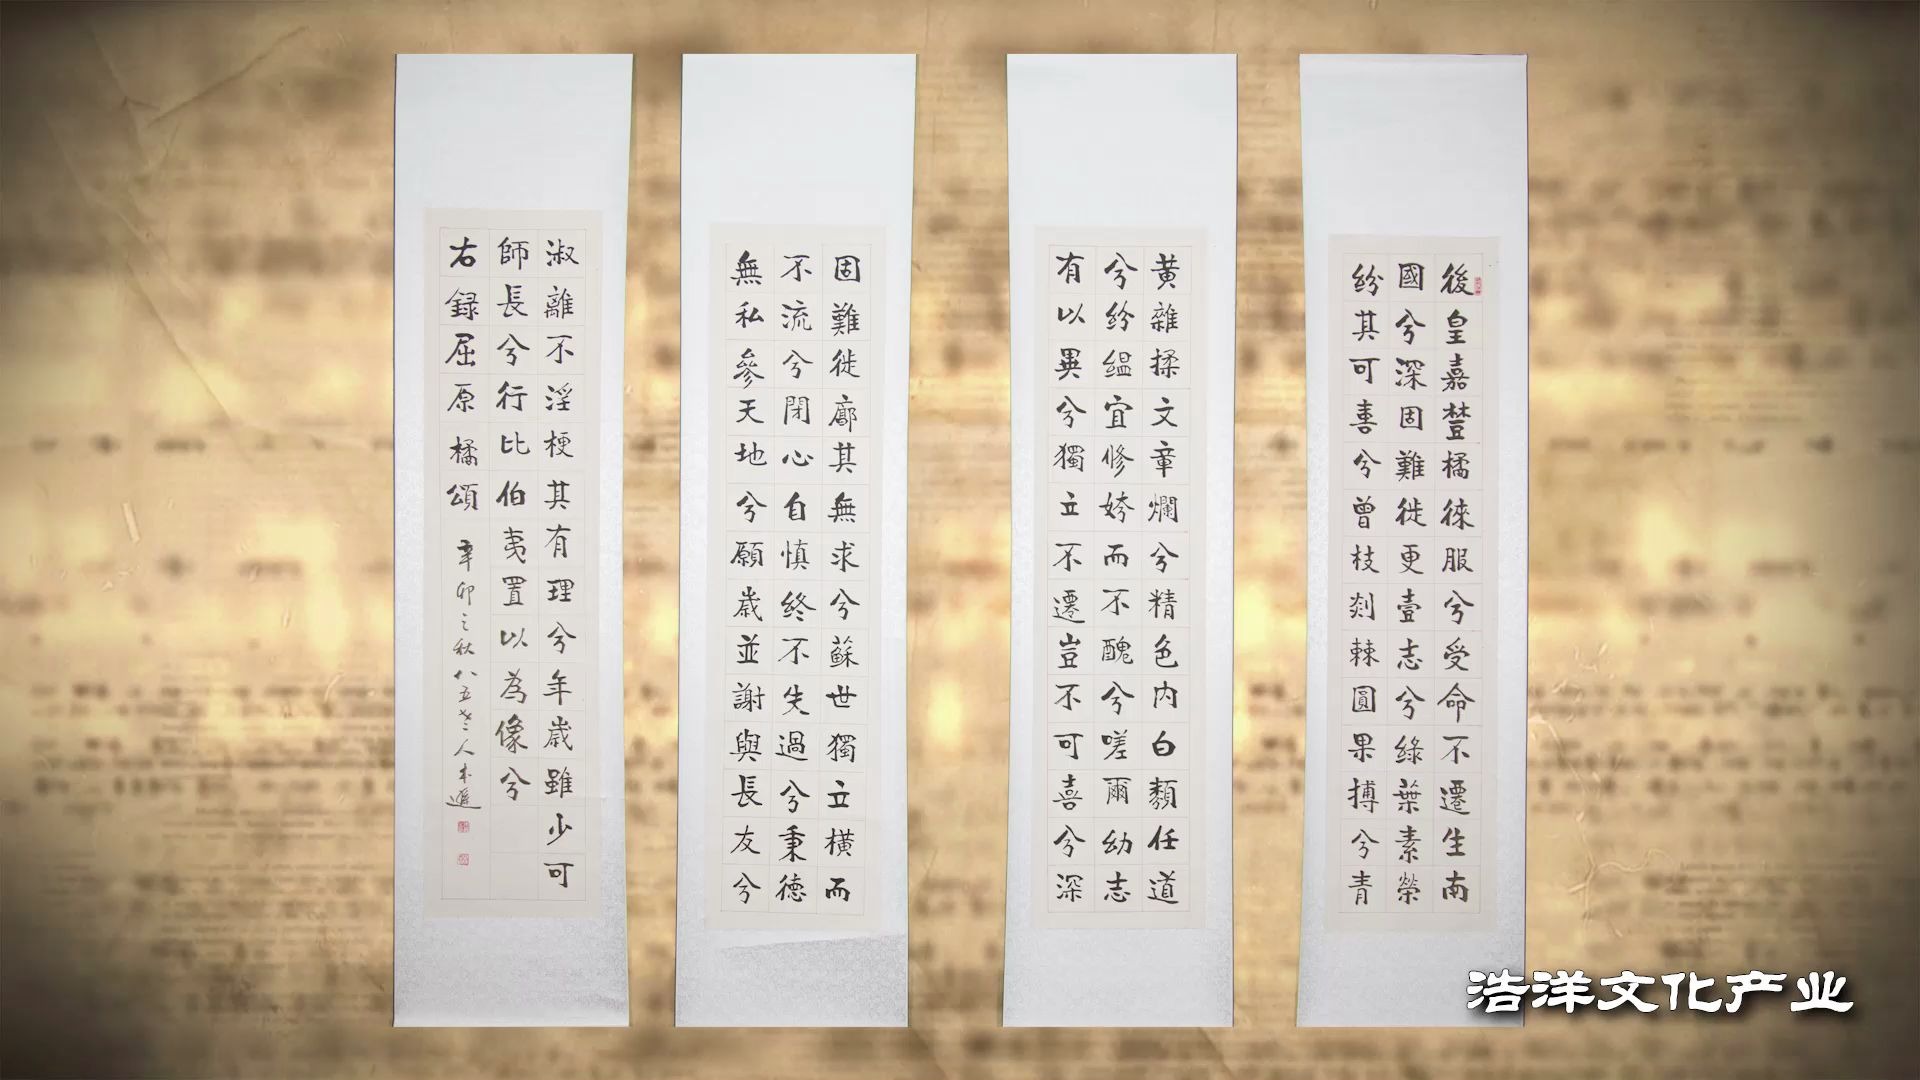 後皇嘉橘徠服兮受命不遷生南
國兮深固難徙更壹志兮綠葉素榮
紛其可喜兮曾枝剡棘圓果搏兮青
黄雜揉文章爛兮精色内白類任道
兮紛緼宜修姱而不醜兮嗟爾幼志
有以異兮獨立不遷豈不可喜兮深
固難徙廓其無求兮蘇世獨立橫而
不流兮閉心自慎終不失過兮秉德
無私參天地兮願歲並謝與長友兮
淑離不淫梗其有理兮年歲雖少可
師長兮行比伯夷置以為像兮
右録屈原橘頌 辛卯之秋八五老人
浩洋文化产业